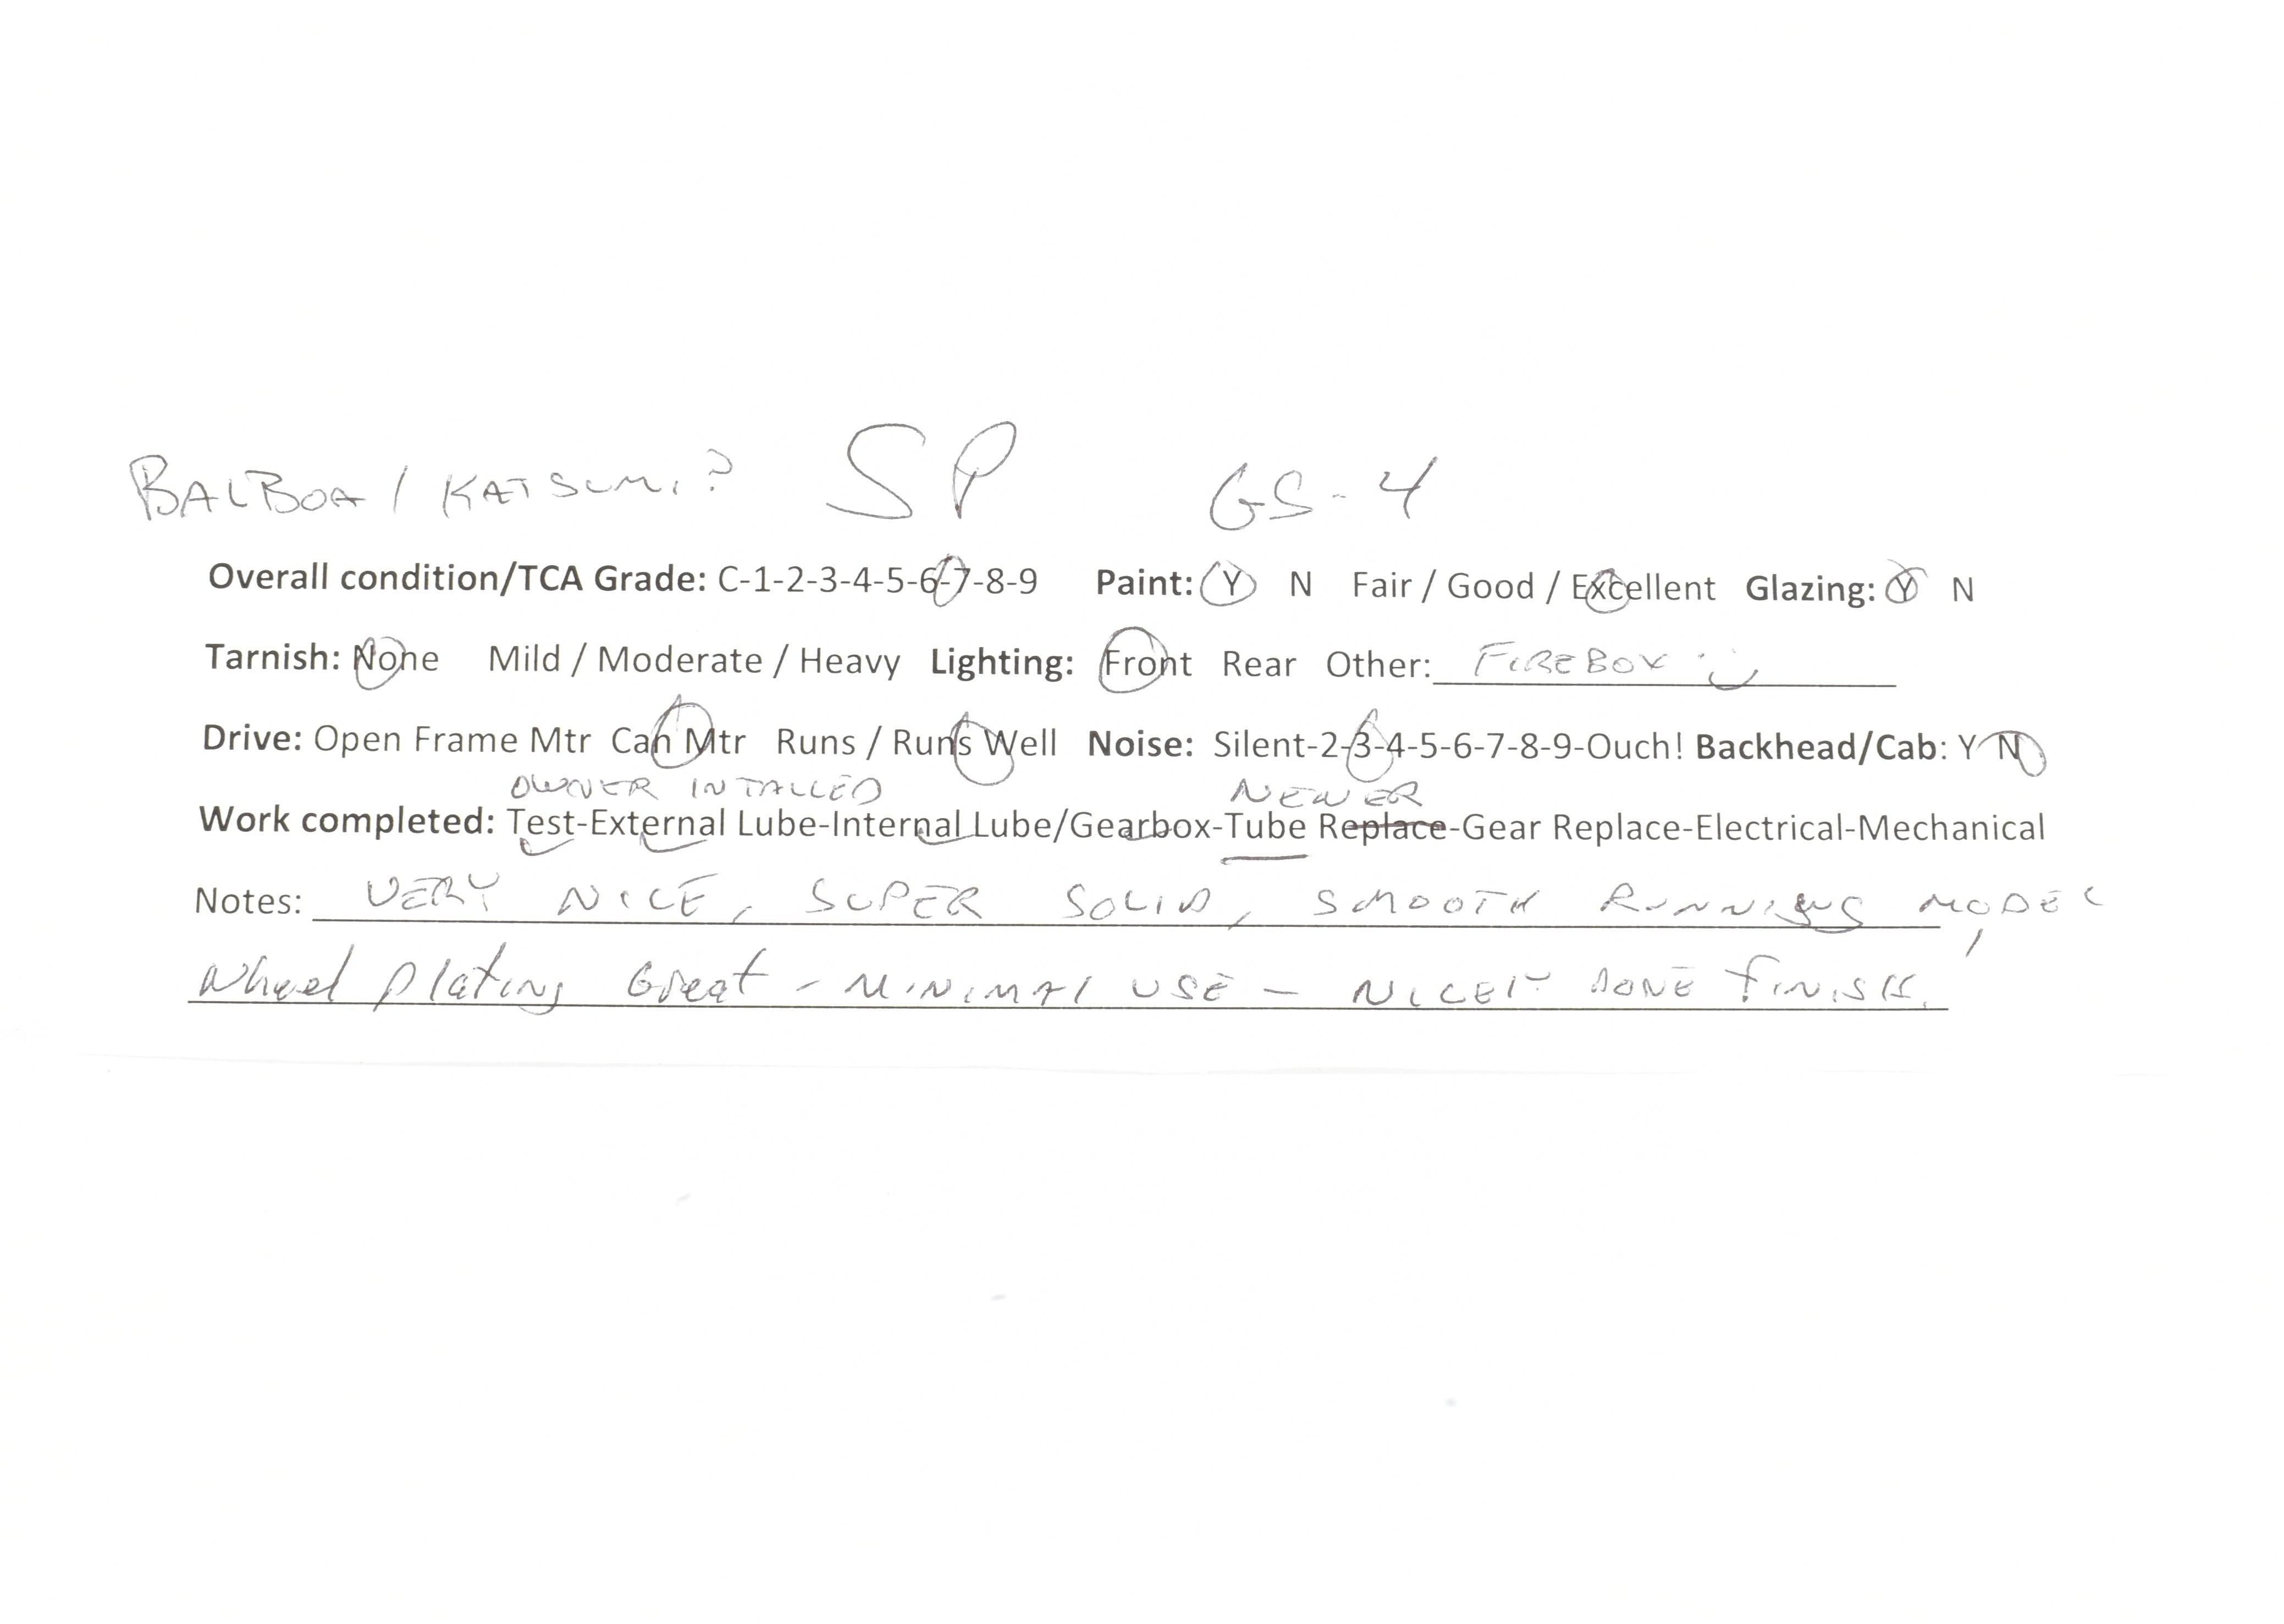 BALBOA / KATSUMI? SP GS-4
Overall condition/TCA Grade: C-1-2-3-4-5-6-7-8-9 Paint: Y N Fair / Good / Excellent Glazing: Y N
Tarnish: None Mild / Moderate / Heavy Lighting: Front Rear Other: FIREBOX
Drive: Open Frame Mtr Can Mtr Runs / Runs Well Noise: Silent-2-3-4-5-6-7-8-9-Ouch! Backhead/Cab: Y N
OWNER INTALLED NEWER
Work completed: Test-External Lube-Internal Lube/Gearbox-Tube Replace-Gear Replace-Electrical-Mechanical
Notes: VERY NICE, SUPER SOLID, SMOOTH RUNNING MODEL,
Wheel Plating Great - MINIMAL USE - NICELY DONE FINISH.